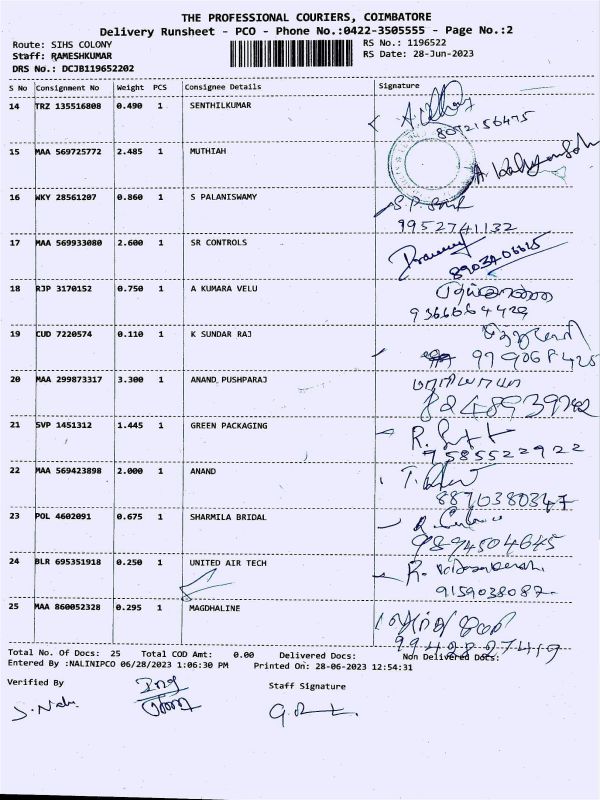 THE PROFESSIONAL COURIERS, COIMBATORE
Delivery Runsheet - PCO - Phone No.:0422-3505555 - Page No.:2
Route: SIHS COLONY RS No.: 1196522
Staff: RAMESHKUMAR RS Date: 28-Jun-2023
DRS No.: DCJB119652202
S No Consignment No Weight PCS Consignee Details Signature
14 TRZ 135516808 0.490 1 SENTHILKUMAR
8072156475
15 MAA 569725772 2.485 1 MUTHIAH
16 WKY 28561207 0.860 1 S PALANISWAMY
9952741132
17 MAA 569933080 2.600 1 SR CONTROLS
18 RJP 3170152 0.750 1 A KUMARA VELU
19 CUD 7220574 0.110 1 K SUNDAR RAJ
20 MAA 299873317 3.300 1 ANAND PUSHPARAJ
21 SVP 1451312 1.445 1 GREEN PACKAGING
9585522922
22 MAA 569423898 2.000 1 ANAND
8870380347
23 POL 4602091 0.675 1 SHARMILA BRIDAL
9894504645
24 BLR 695351918 0.250 1 UNITED AIR TECH
9159038087
25 MAA 860052328 0.295 1 MAGDHALINE
9942827419
Total No. Of Docs: 25 Total COD Amt: 0.00 Delivered Docs: Non Delivered Docs:
Entered By :NALINIPCO 06/28/2023 1:06:30 PM Printed On: 28-06-2023 12:54:31
Verified By Staff Signature